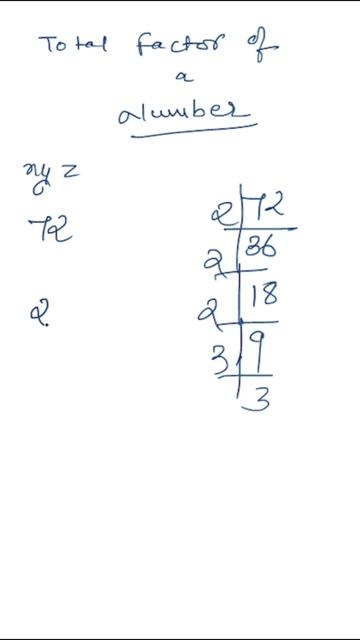 Total factor of
a
Number
xy z
72
2
2 72
2 36
2 18
3 9
3